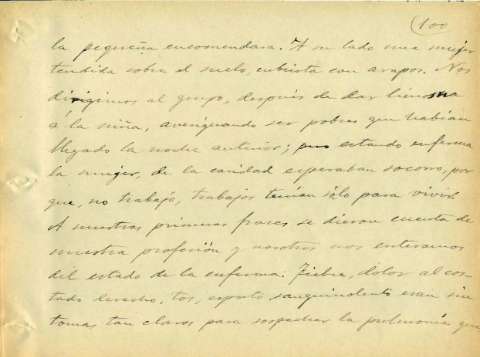 (100
la pequeña encomendara. A su lado una mujer
tendida sobre el suelo, cubierta con arapos. Nos
dirigimos al grupo, después de dar limosna
á la niña, averiguando ser pobres que habían
llegado la noche anterior; pero estando enferma
la mujer, de la caridad esperaban socorro, por
que, no trabajo, trabajos tenían sólo para vivir.
A nuestras primeras frases se dieron cuenta de
nuestra profesión y nosotros nos enteramos
del estado de la enferma. Fiebre, dolor al cos-
tado derecho, tos, esputo sanguinolento eran sín
tomas tan claros para sospechar la pulmonía que